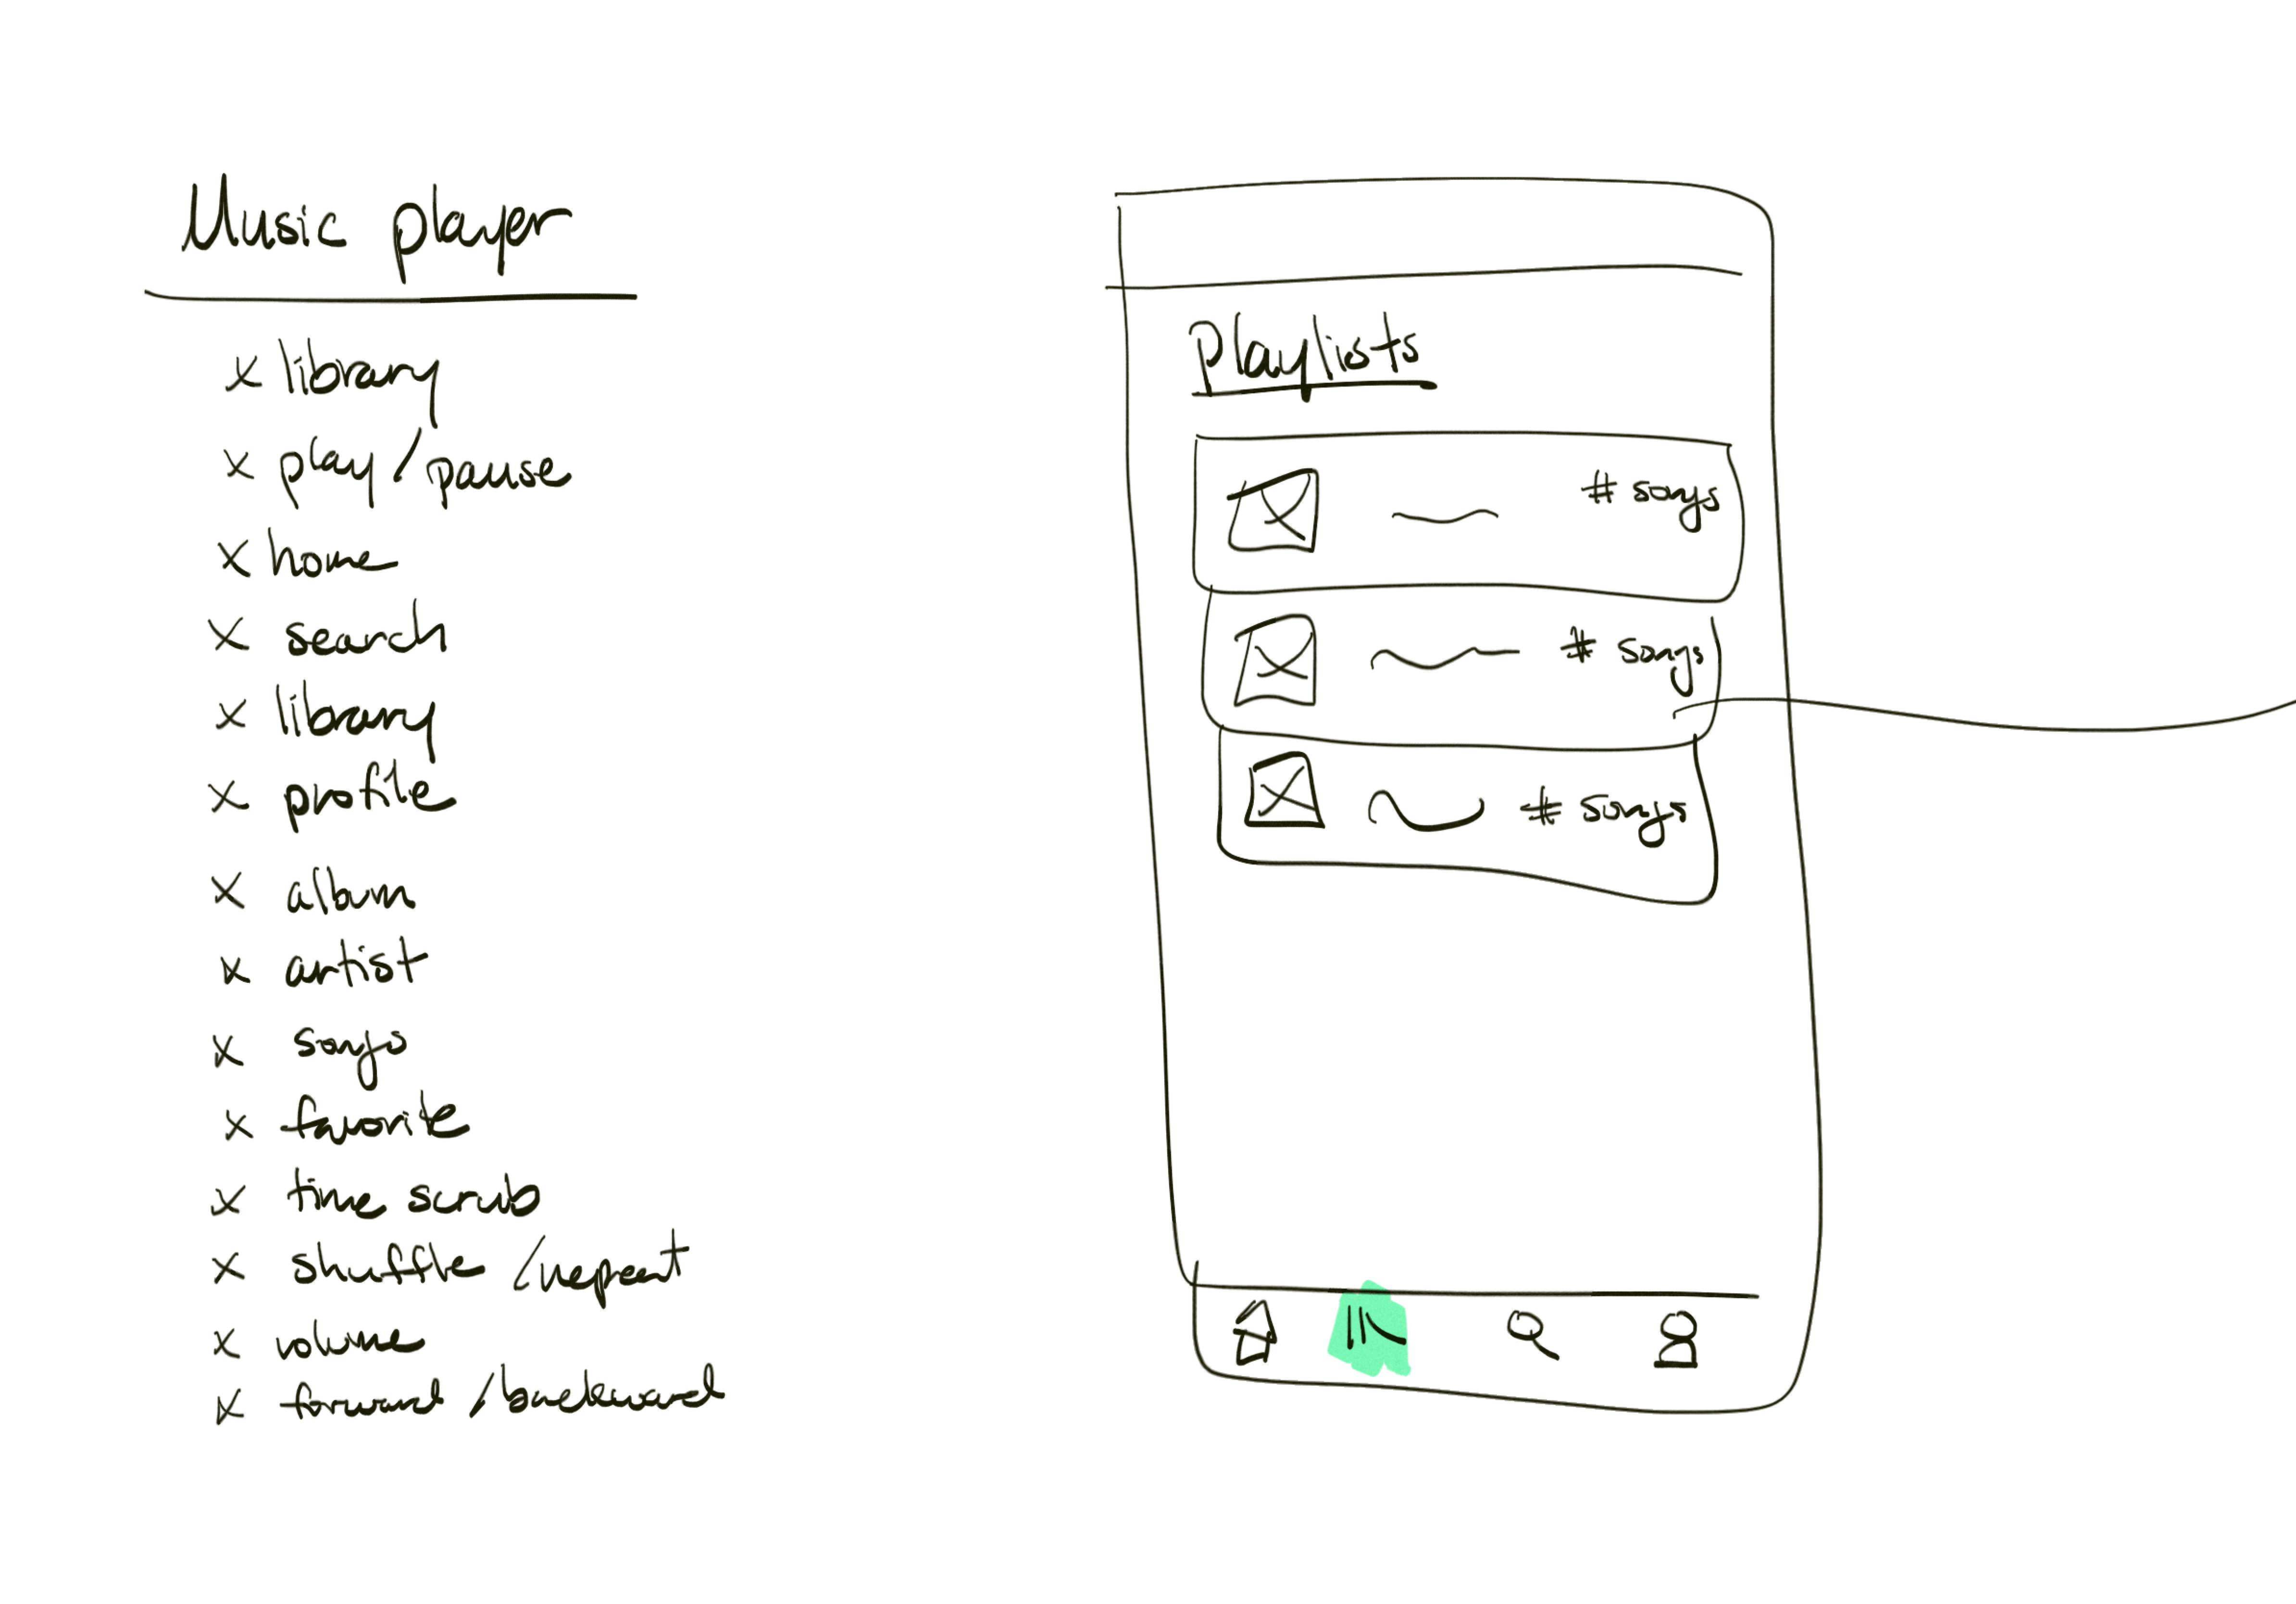 Music player
x library
x play/pause
x home
x search
x library
x profile
x album
x artist
x songs
x favorite
x time scrub
x shuffle/repeat
x volume
x forward/backward
Playlists
# songs
# songs
# songs